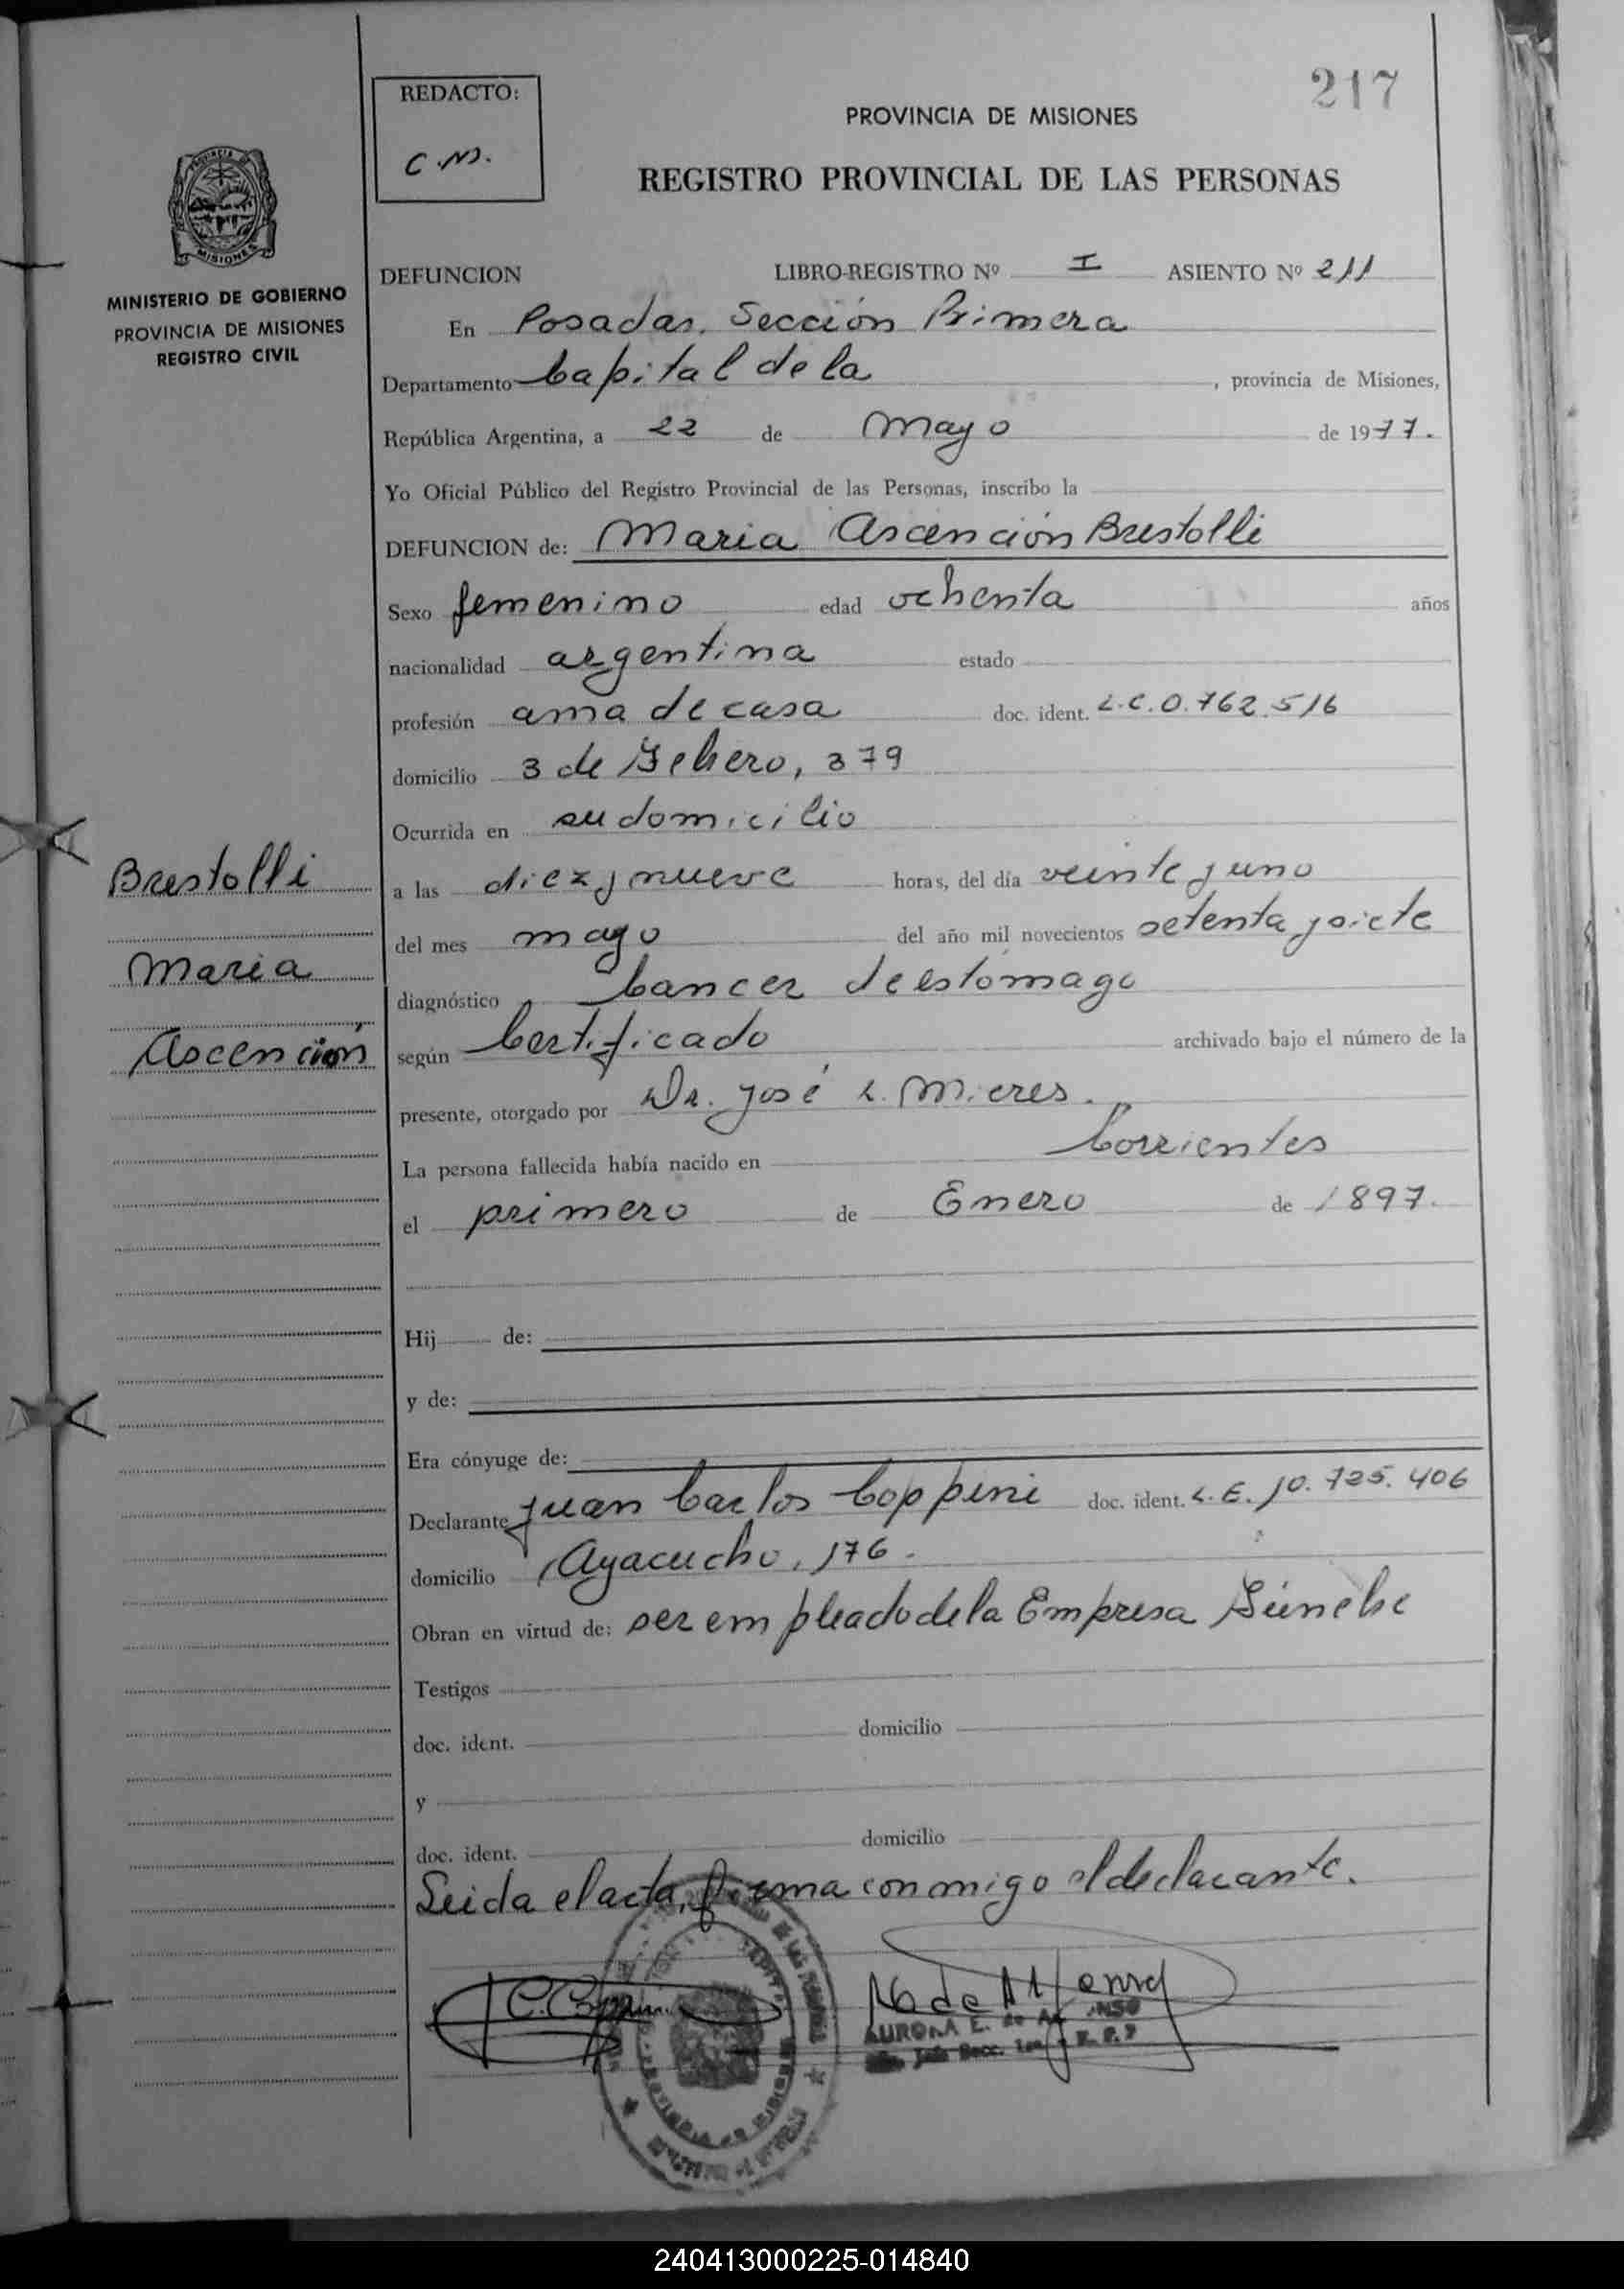 217
REDACTO:
C.M.
PROVINCIA DE MISIONES
REGISTRO PROVINCIAL DE LAS PERSONAS
MINISTERIO DE GOBIERNO
PROVINCIA DE MISIONES
REGISTRO CIVIL
DEFUNCION LIBRO-REGISTRO Nº I ASIENTO Nº 211
En Posadas. Sección Primera
Departamento Capital de la, provincia de Misiones,
República Argentina, a 22 de Mayo de 1977.
Yo Oficial Público del Registro Provincial de las Personas, inscribo la
DEFUNCION de: Maria Ascención Brestolli
Sexo femenino edad ochenta años
nacionalidad argentina estado
profesión ama de casa doc. ident. L.C.0.762.516
domicilio 3 de Febrero, 379
Ocurrida en su domicilio
Brestolli
Maria
Ascención
a las diez y nueve horas, del día veinte y uno
del mes mayo del año mil novecientos setenta y siete
diagnóstico Cancer de estómago
según Certificado archivado bajo el número de la
presente, otorgado por Dr. José L. Mieres.
La persona fallecida había nacido en Corrientes
el primero de Enero de 1897.
Hij de:
y de:
Era cónyuge de:
Declarante Juan Carlos Coppini doc. ident. L.E. 10.725.406
domicilio Ayacucho, 176.
Obran en virtud de: ser empleado de la Empresa Fúnebre
Testigos
doc. ident. domicilio
y
doc. ident. domicilio
Leida el acta, firma conmigo el declarante.
AURORA E. de
240413000225-014840